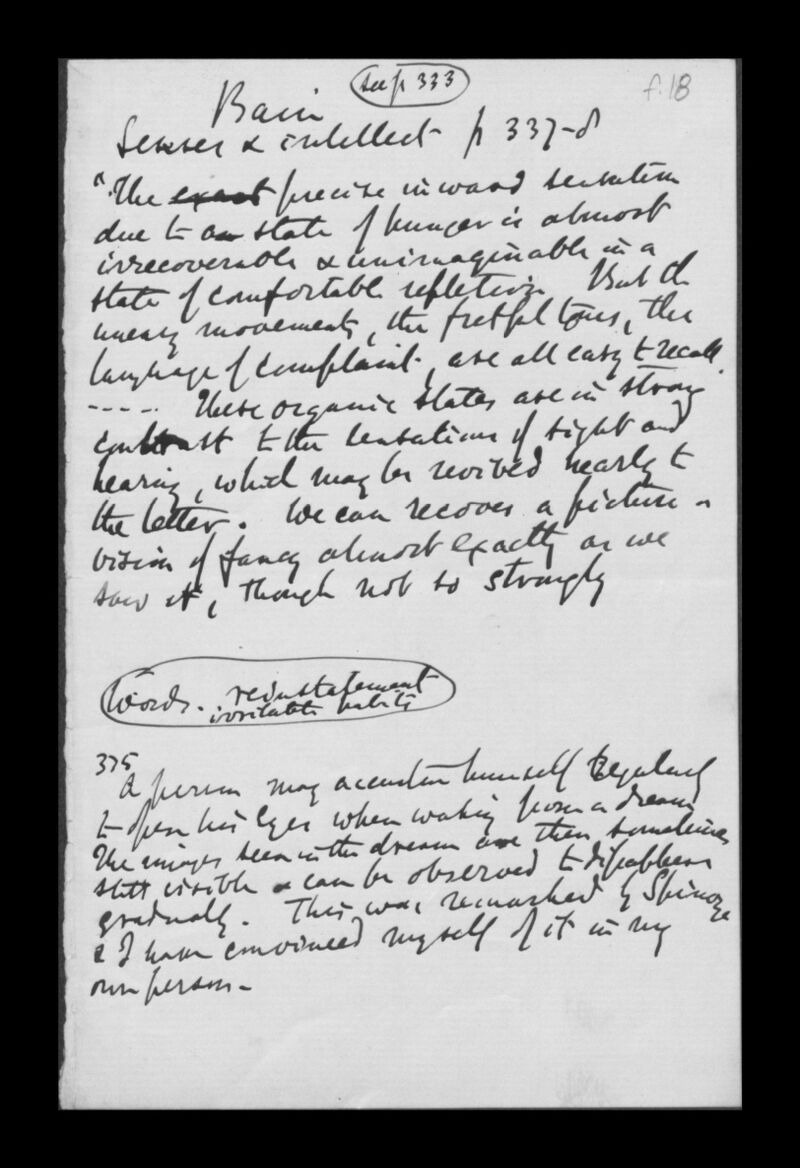 see p 333
f.18
Bain
Senses & intellect p 337-8
"The exact precise inward sensation
due to a state of hunger is almost
irrecoverable & unimaginable in a
state of comfortable repletion. But the
uneasy movements, the fretful tones, the
language of complaint, are all easy to recall.
----- These organic states are in strong
contrast to the sensations of sight and
hearing, which may be revived nearly to
the letter. We can recover a picture or
vision of fancy almost exactly as we
saw it, though not so strongly
Words. reinstatement
habits
375
A person may accustom himself regularly
to open his eyes when waking from a dream
The images seen in the dream are then sometimes
still visible & can be observed to disappear
gradually. This was remarked by Spinoza
& I have convinced myself of it in my
own person -